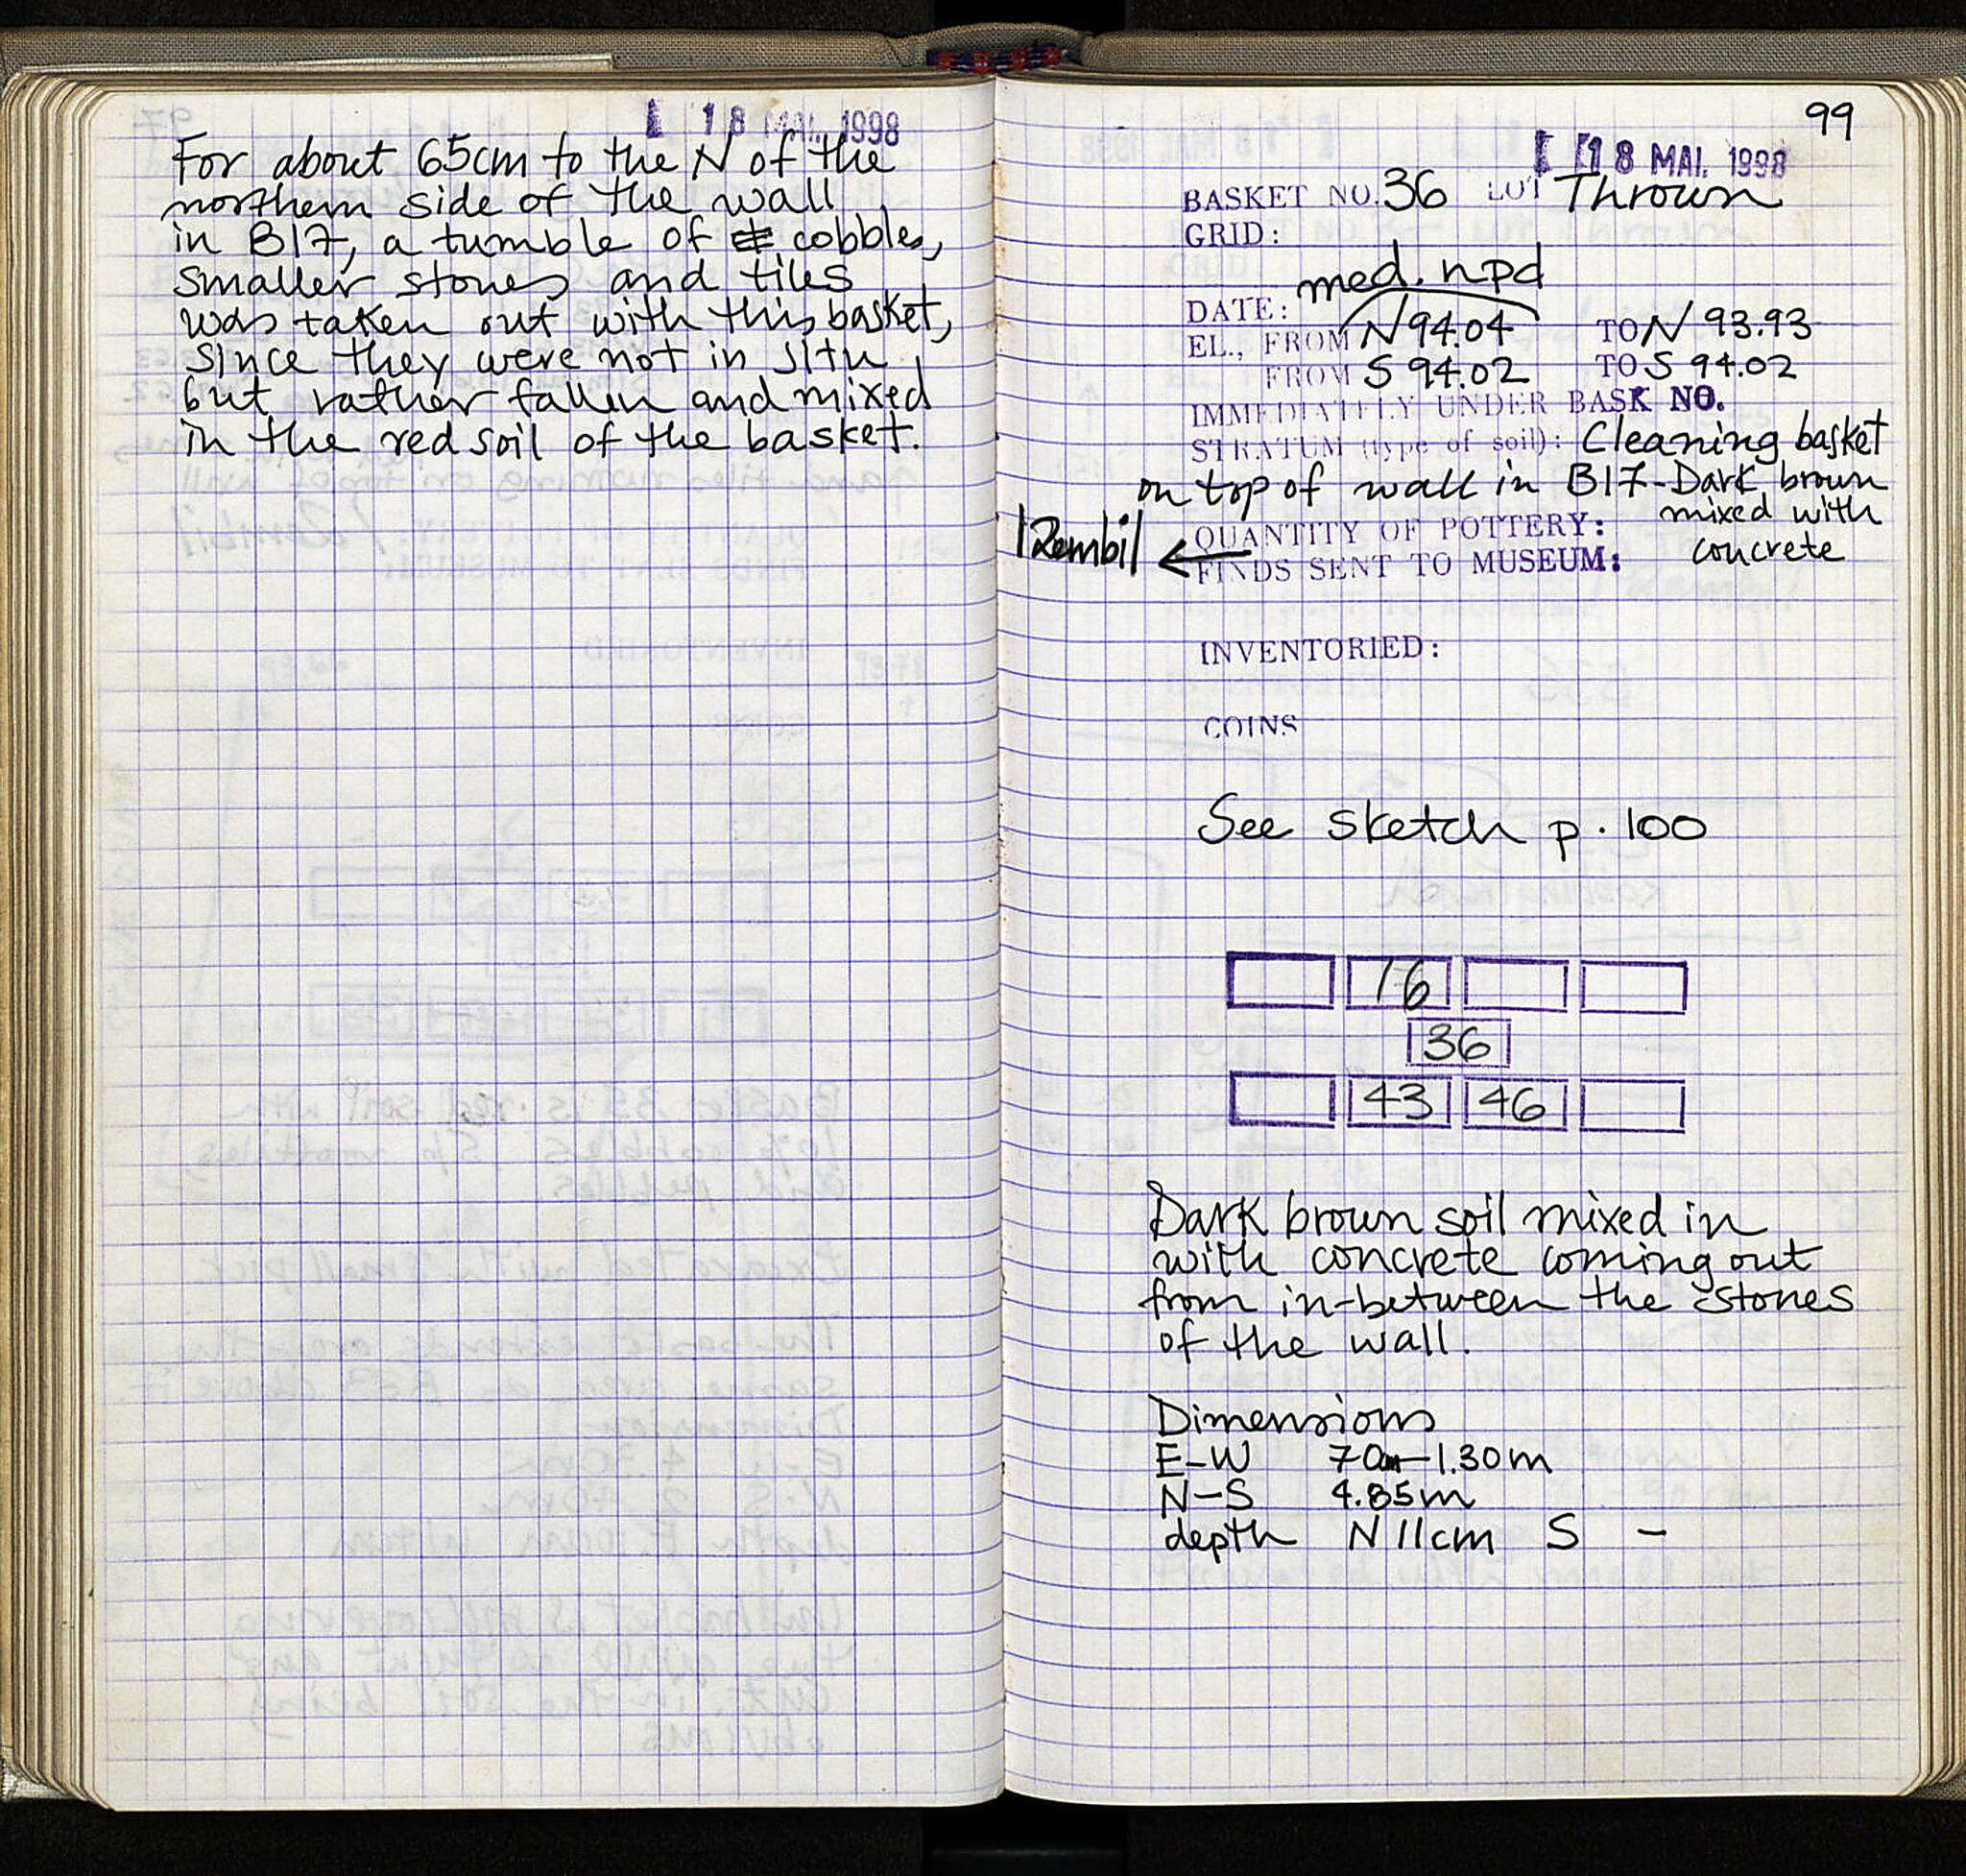 18 MAI. 1998
For about 65cm to the N of the
northern side of the wall
in B17, a tumble of cobbles,
smaller stones and tiles
was taken out with this basket,
since they were not in situ,
but rather fallen and mixed
in the red soil of the basket.
99
18 MAI. 1998
BASKET NO. 36 LOT Thrown
GRID:
med. npd
DATE:
EL., FROM N 94.04 TO N 93.93
FROM S 94.02 TO S 94.02
IMMEDIATELY UNDER BASK NO.
STRATUM (type of soil): Cleaning basket
on top of wall in B17-Dark brown
mixed with
concrete
1 Zembil ← QUANTITY OF POTTERY:
FINDS SENT TO MUSEUM:
INVENTORIED:
COINS
See sketch p. 100
16
36
43 46
Dark brown soil mixed in
with concrete coming out
from in-between the stones
of the wall.
Dimensions
E-W 70cm-1.30m
N-S 4.85m
depth N 11cm S -